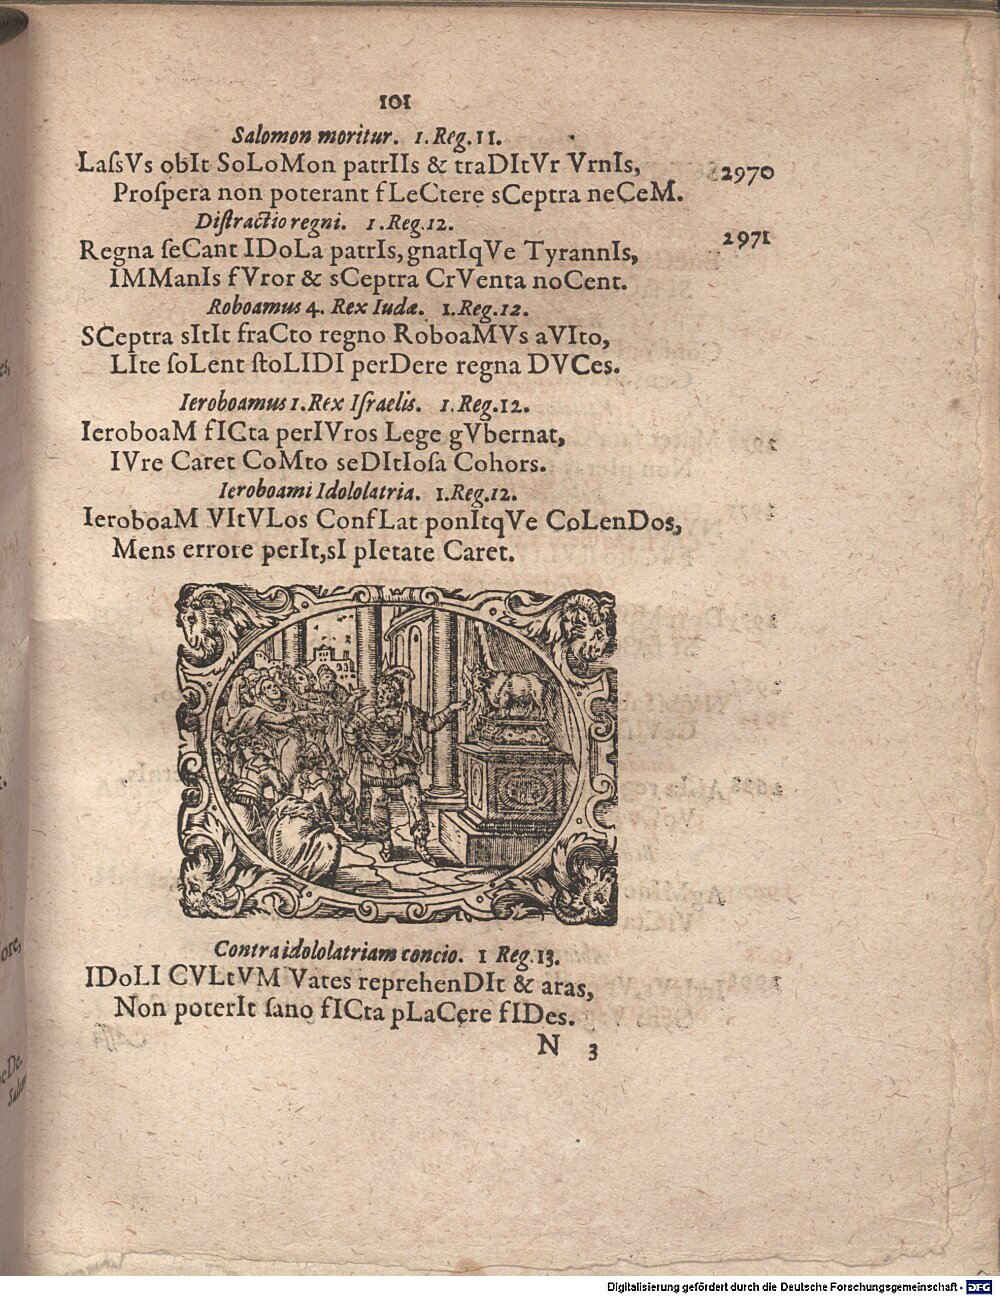 101
Salomon moritur. 1.Reg.11.
LaſsVs obIt SoLoMon patrIIs & traDItVr VrnIs, 2970
Proſpera non poterant fLeCtere sCeptra neCeM.
Diſtractio regni. 1.Reg.12.
Regna ſeCant IDoLa patrIs, gnatIqVe TyrannIs, 2971
IMManIs fVror & sCeptra CrVenta noCent.
Roboamus 4. Rex Iudæ. 1.Reg.12.
SCeptra sItIt fraCto regno RoboaMVs aVIto,
LIte ſoLent ſtoLIDI perDere regna DVCes.
Ieroboamus 1.Rex Iſraelis. 1.Reg.12.
IeroboaM fICta perIVros Lege gVbernat,
IVre Caret CoMto seDItIoſa Cohors.
Ieroboami Idololatria. 1.Reg.12.
IeroboaM VItVLos ConfLat ponItqVe CoLenDos,
Mens errore perIt,sI pIetate Caret.
Contra idololatriam concio. 1 Reg.13.
IDoLI CVLtVM Vates reprehenDIt & aras,
Non poterIt ſano fICta pLaCere fIDes.
N 3
Digitalisierung gefördert durch die Deutsche Forschungsgemeinschaft - DFG